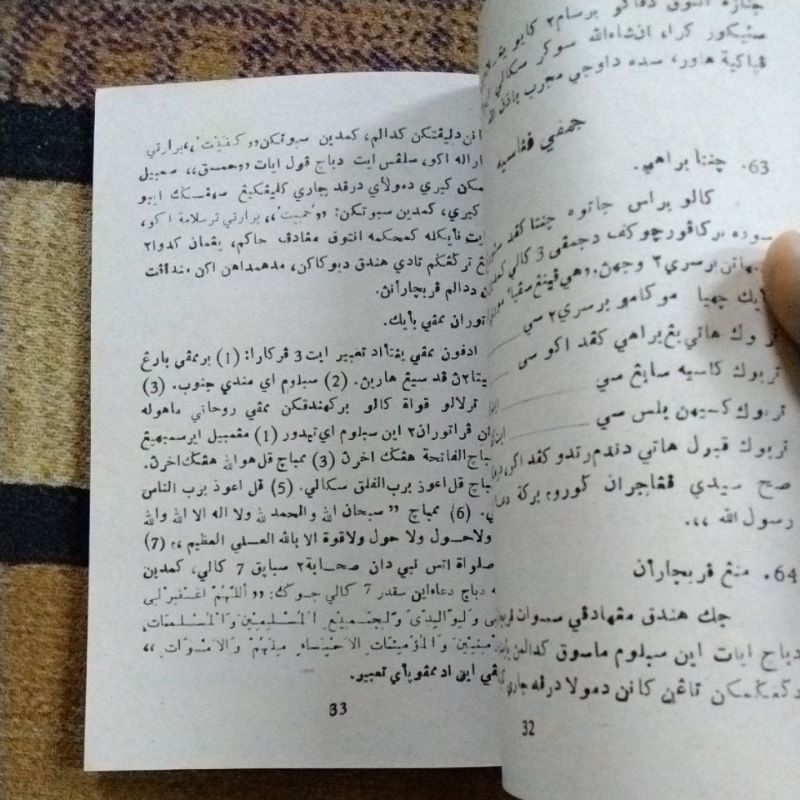 جنازه انتوق دڤاکو برسام٢ کايو
سئيکور کراء، ان‌شاءالله سوکر سکالي
ڤاکيه هاور، سده داوجي مجرب باذن الله
جمڤي ڤڠاسيه
63. چنتا براهي.
کالو براس جاتوه چنتا کڤد
سوده برکاڤورچوکف دجمڤي 3 کالي
برسري٢ وجهن، ,,هي ڤينڠ
ڽايک چهيا موکامو برسري٢ سي
تربوک هاتي يڠ براهي کڤد اکو سي
تربوک کاسيه سايڠ سي
تربوک کسيهن بلس سي
تربوک قبرل هاتي دندم رندو کڤد اکو،
صح سيدي ڤڠاجران کوروم برکة
رسول الله ،،.
64. منڠ ڤربچارأن
جک هندق مڠهادڤي سسوات
دباچ ايات اين سبلوم ماسوق کدالمن
دڬڠڬمکن تاڠن کانن دمولا درڤه جاري
32
انن دليڤتکن کدالم، کمدين سبوتکن ,,کفيت،، برارتي
اراله اکو، سلڤس ايت دباچ ڤول ايات ,,حمسق،، سمبيل
مکن کيري دمولأي درڤد جاري کليڠکيڠ سهڠݢ ايبو
کيري، کمدين سبوتکن: ,,حميت،، برارتي ترسلامة اکو،
ايت نأيکله کمحکمه انتوق مڠادڤ حاکم، يڠمان کدوا٢
ڠ ترڬڠڬم تادي هندق دبوکاکن، مدهمداهن اکن منداڤت
ن ددالم ڤربچارأن.
تورن ممڤي بأيک.
ادڤون ممڤي يڠتأد تعبير ايت 3 ڤرکارا: (1) برممڤي بارڠ
يتا٢ن ڤد سيڠ هارين. (2) سبلوم اي مندي جنوب. (3)
ترلالو قواة کالو برکهندقکن ممڤي روحاني ماهوله
ن ڤراتوران٢ اين سبلوم اي تيدور (1) مڠمبيل ايرسمبهيڠ
مباچ الفاتحة هڠݢ اخرن (3) مباچ قل هو الله هڠݢ اخرن.
باچ قل اعوذ برب الفلق سکالي. (5) قل اعوذ برب الناس
ي. (6) مباچ ،،سبحان الله والحمد لله ولا اله الا الله والله
ولاحول ولا حول ولاقوة الا بالله العلي العظيم ،، (7)
صلواة اتس نبي دان صحابة٢ سباڽق 7 کالي، کمدين
ه دباچ دعاء اين سقدر 7 کالي جوݢ: ,,اللّٰهم اغفر لي
ي ولوالدي ولجميع المسلمين والمسلمات،
منين والمؤمنات الاحياء منهم والاموات،،
مڤي اين اد ممڤوڽأي تعبير.
33